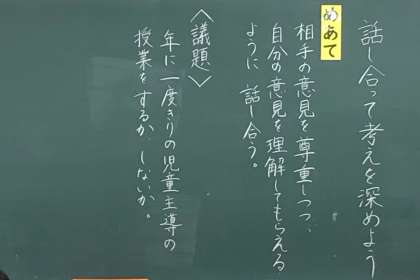 話し合って考えを深めよう
めあて
相手の意見を尊重しつつ、
自分の意見を理解してもらえる
ように 話し合う。
〈議題〉
年に一度きりの児童主導の
授業をするか、しないか。